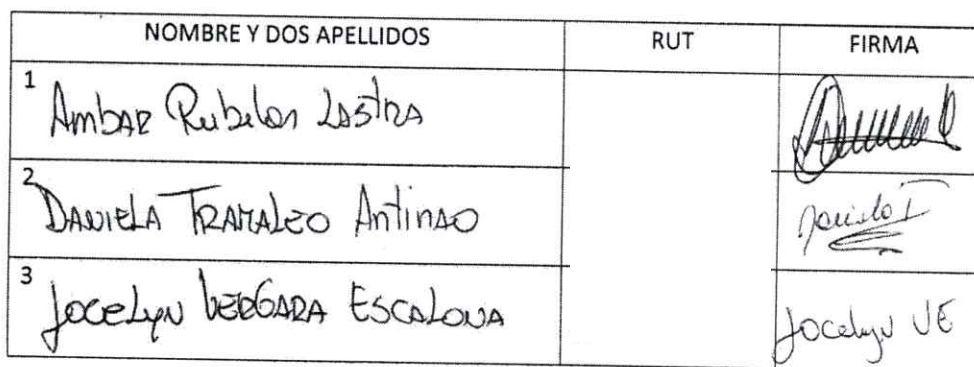 NOMBRE Y DOS APELLIDOS RUT FIRMA
1 Ambar Rubilar Lastra
2 Daniela Antinao Daniela T
3 Jocelyn Vergara Escalona Jocelyn VE